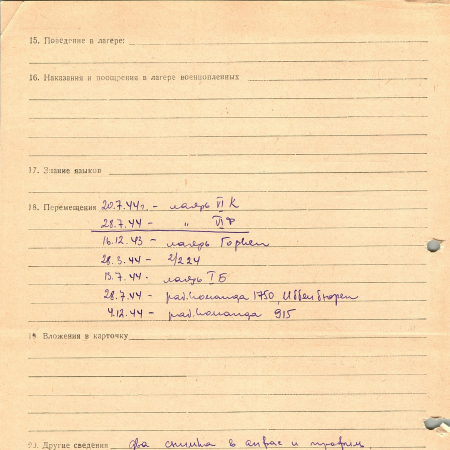 15. Поведение в лагере:
16. Наказания и поощрения в лагере военнопленных
17. Знание языков
18. Перемещения 20.7.44г. - лагерь II К
28.7.44 - " II Ф
16.12.43 - лагерь Горвеп
28.3.44 - 2/224
13.7.44 - лагерь I Б
28.7.44 - раб. команда 1750, Иббенбюрен
4.12.44 - раб. команда 915
19. Вложения в карточку
20. Другие сведения два снимка в анфас и профиль